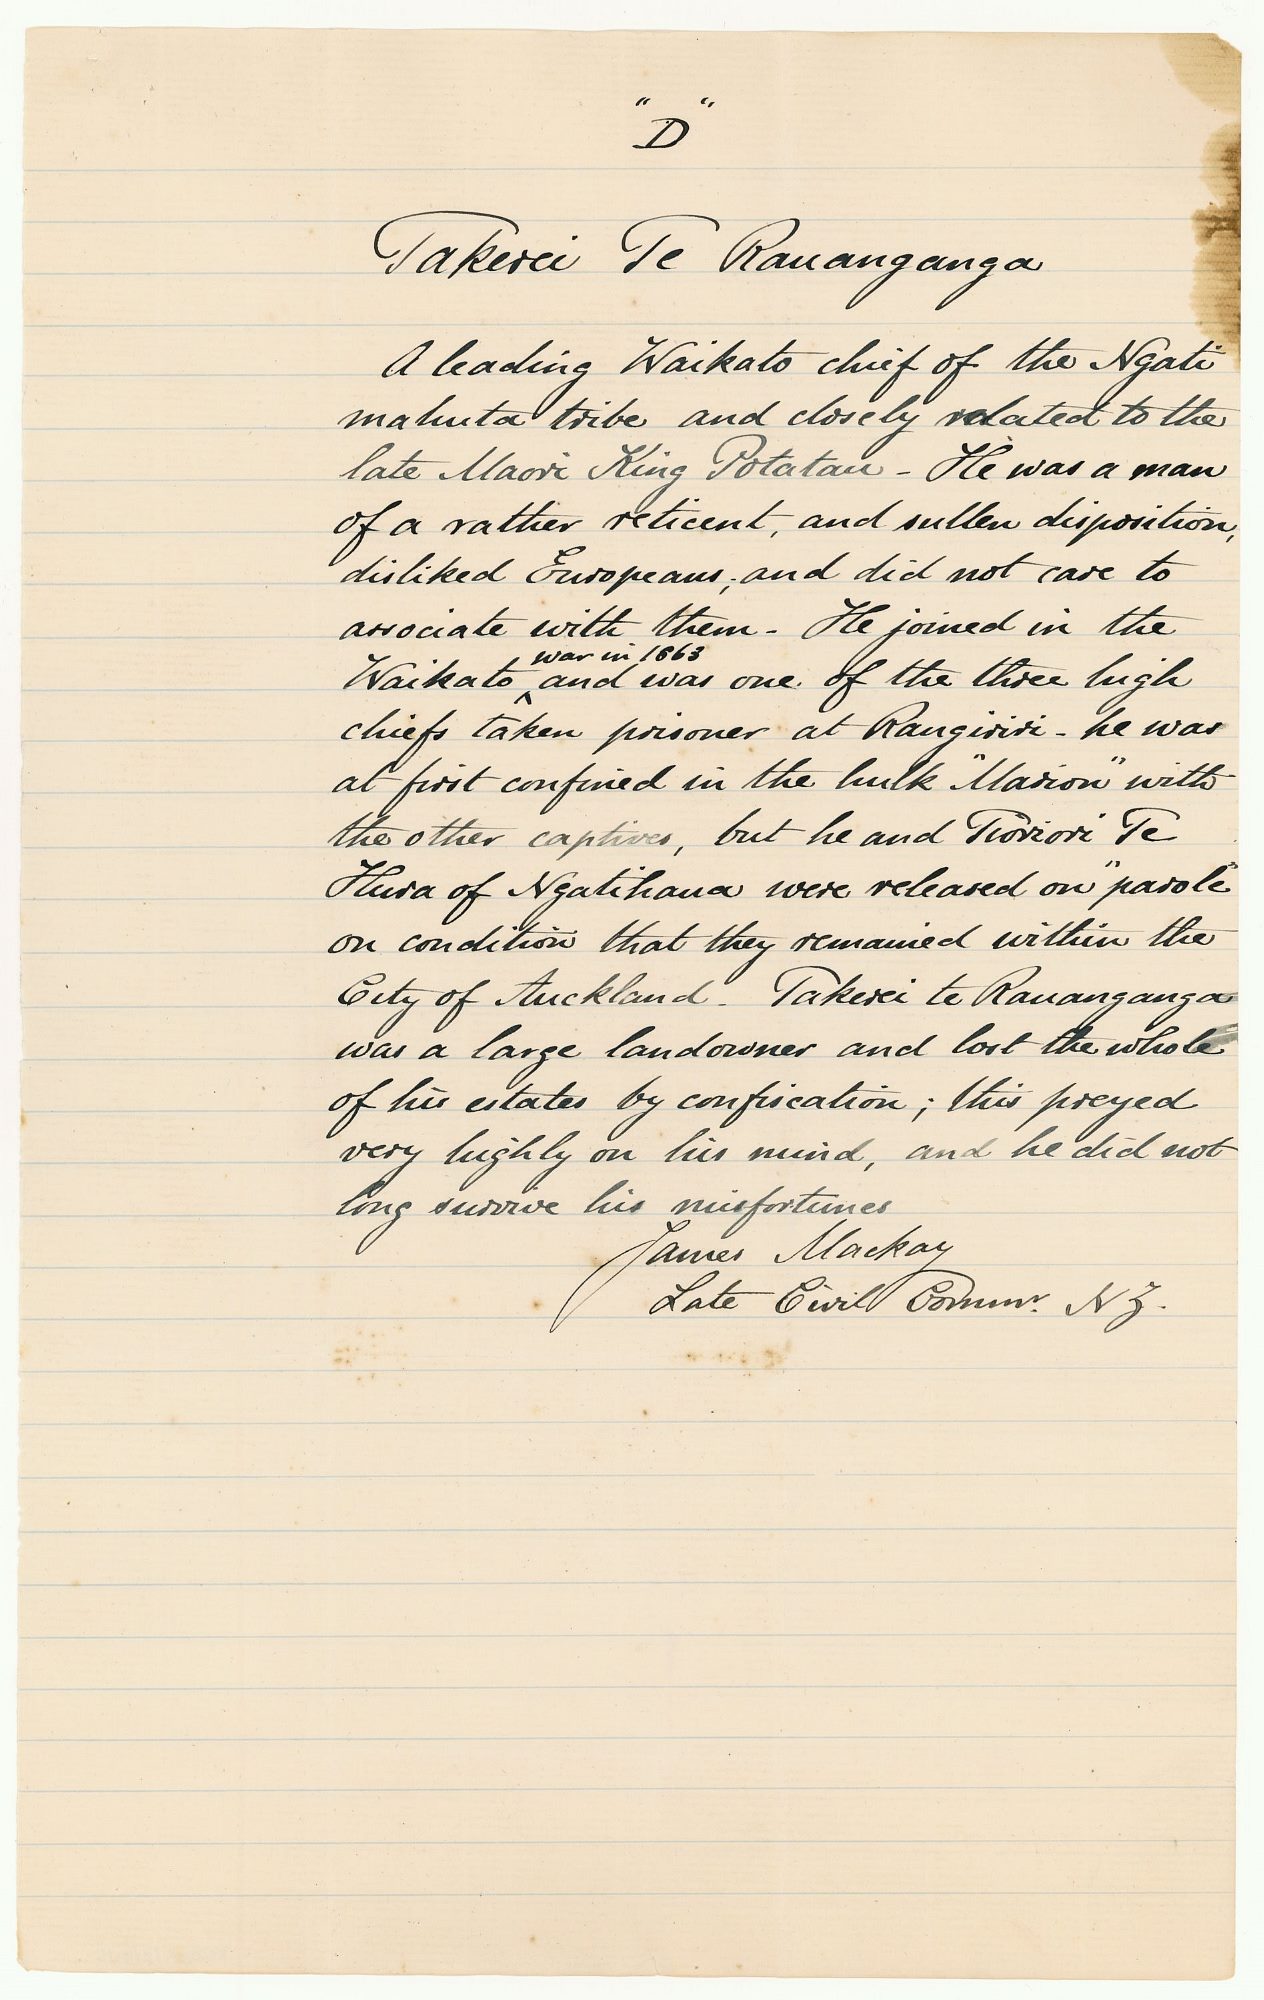 "D"
Takerei Te Rauanganga
A leading Waikato chief of the Ngati
mahuta tribe and closely related to the
late Maori King Potatau - He was a man
of a rather reticent, and sullen disposition,
disliked Europeans, and did not care to
associate with them - He joined in the
war in 1863
Waikato ^ and was one of the three high
chiefs taken prisoner at Rangiriri - he was
at first confined in the hulk "Marion" with
the other captives, but he and Tioriori Te
Hura of Ngatihaua were released on "parole"
on condition that they remained within the
City of Auckland. Takerei te Rauanganga
was a large landowner and lost the whole
of his estates by confiscation; this preyed
very highly on his mind, and he did not
long survive his misfortunes
James Mackay
Late Civil Commr. N Z.